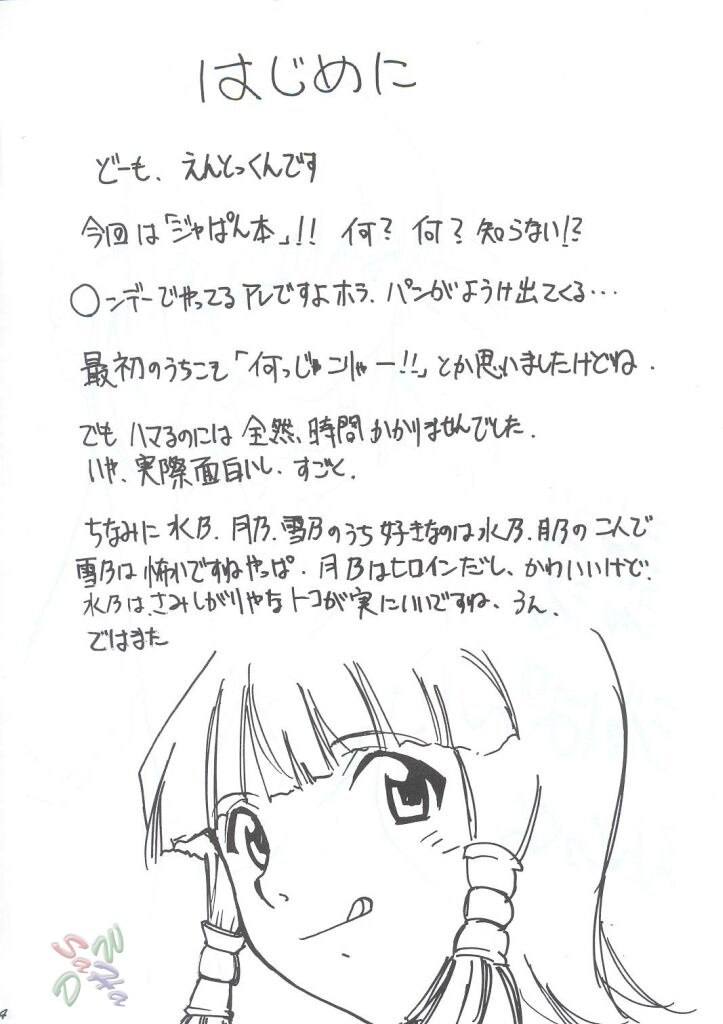 はじめに
どーも、えんとっくんです
今回は「ジャぱん本」!! 何? 何? 知らない!?
〇ンデーでやってるアレですよホラ、パンがようけ出てくる…
最初のうちこそ「何っじゃこりゃー!!」とか思いましたけどね.
でもハマるのには全然、時間かかりませんでした.
いや、実際面白いし、すごと.
ちなみに水乃、月乃、雪乃のうち好きなのは水乃、月乃のこんで
雪乃は怖いですねやっぱ. 月乃はヒロインだし、かわいいけど、
水乃は、さみしがりやなトコが実にいいですね、うん.
ではまた
SaHa
4